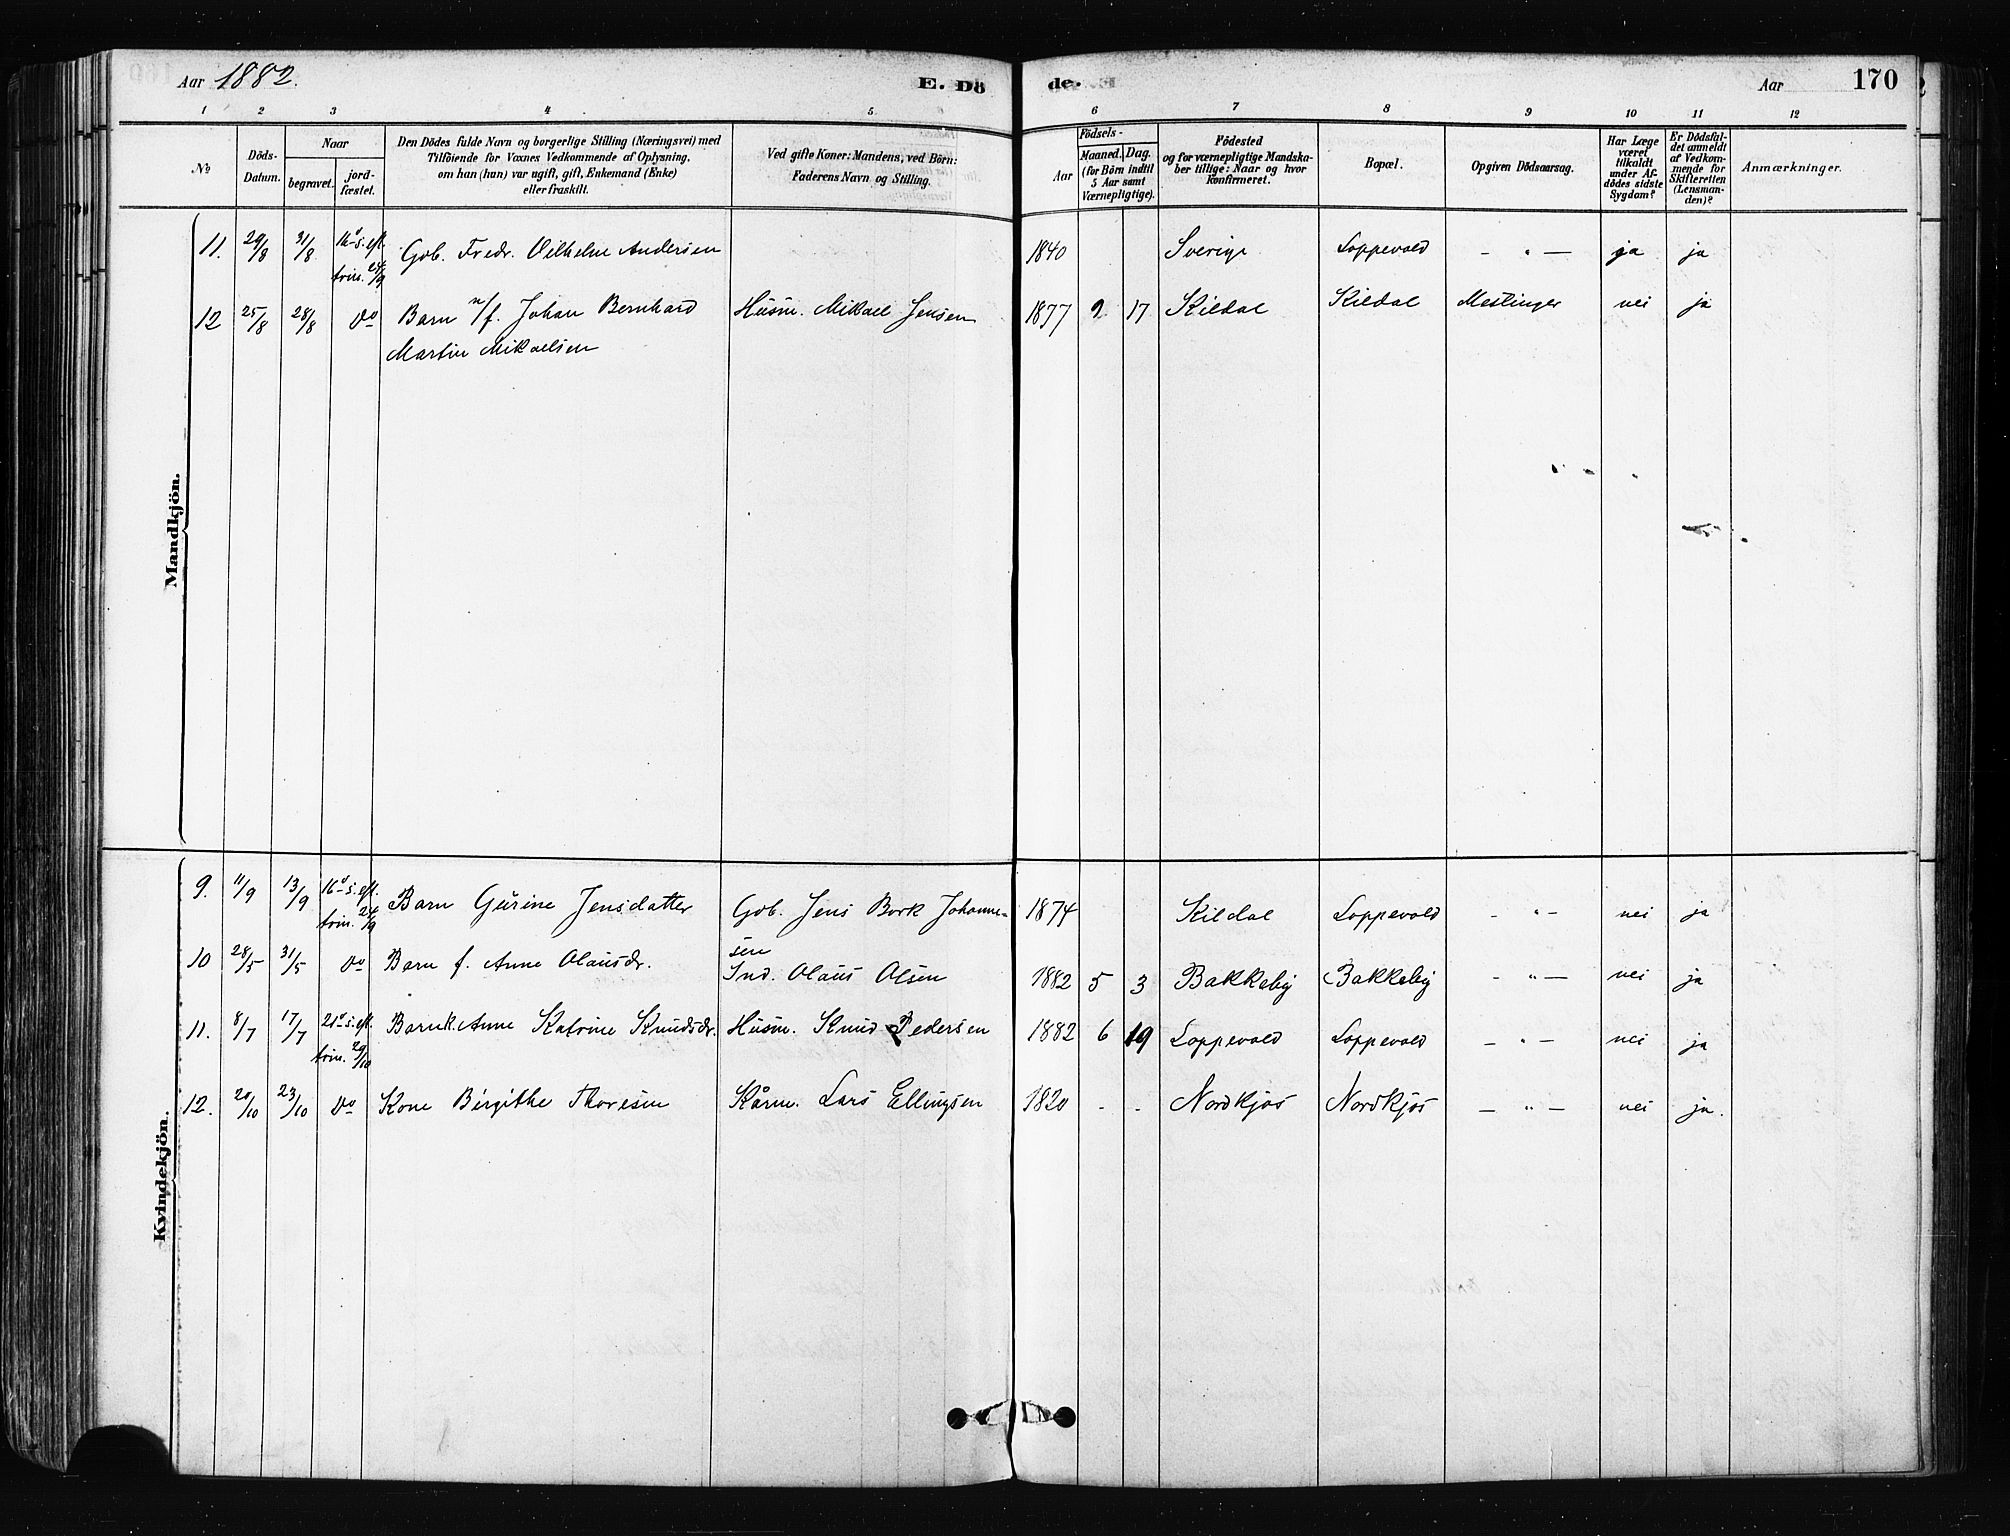 Aar 1882.
E. Dö
de.
Aar
170
1 2 3 4 5 6 7 8 9 10 11 12
No
Döds-
Datum.
Naar
begravet.
jord-
fæstet.
Den Dödes fulde Navn og borgerlige Stilling (Næringsvei) med
Tilföiende for Voxnes Vedkommende af Oplysning,
om han (hun) var ugift, gift, Enkemand (Enke)
eller fraskilt.
Ved gifte Koner: Mandens, ved Börn:
Faderens Navn og Stilling.
Aar
Födsels-
Maaned. Dag.
(for Börn indtil
5 Aar samt
Værnepligtige).
Födested
og for værnepligtige Mandska-
ber tillige: Naar og hvor
konfirmeret.
Bopæl.
Opgiven Dödsaarsag.
Har Læge
været
tilkaldt
under Af-
dödes sidste
Sygdom?
Er Dödsfal-
det anmeldt
af Vedkom-
mende for
Skifteretten
(Lensman-
den)?
Anmærkninger.
Mandkjön.
11. 29/8 31/8 16d s. eft. trin. 24/9 Gbr. Fredr. Vilhelm Andersen 1840 Sverige Loppevold — " — ja ja
12 25/8 28/8 do Barn n/f. Johan Bernhard Husm. Mikael Jensen 1877 2 17 Kildal Kildal Mestinger nei ja
Martin Mikaelsen
Kvindekjön.
9. 11/9 13/9 16d s. eft. trin. 24/9 Barn Gurine Jensdatter Gbr. Jens Bork Johanne- 1874 Kildal Loppevold — " — nei ja
sen
10 28/5 31/5 do Barn f. Anne Olausdr. Ind. Olaus Olsen 1882 5 3 Bakkeby Bakkeby — " — nei ja
11. 8/7 17/7 21d s. eft. trin. 29/10 Barn k. Anne Katrine Knudsdr. Husm. Knud Pedersen 1882 6 19 Loppevold Loppevold — " — nei ja
12. 20/10 23/10 do Kone Birgithe Thoresen Kårm. Lars Ellingsen 1820 - - Nordkjos Nordkjos — " — nei ja.